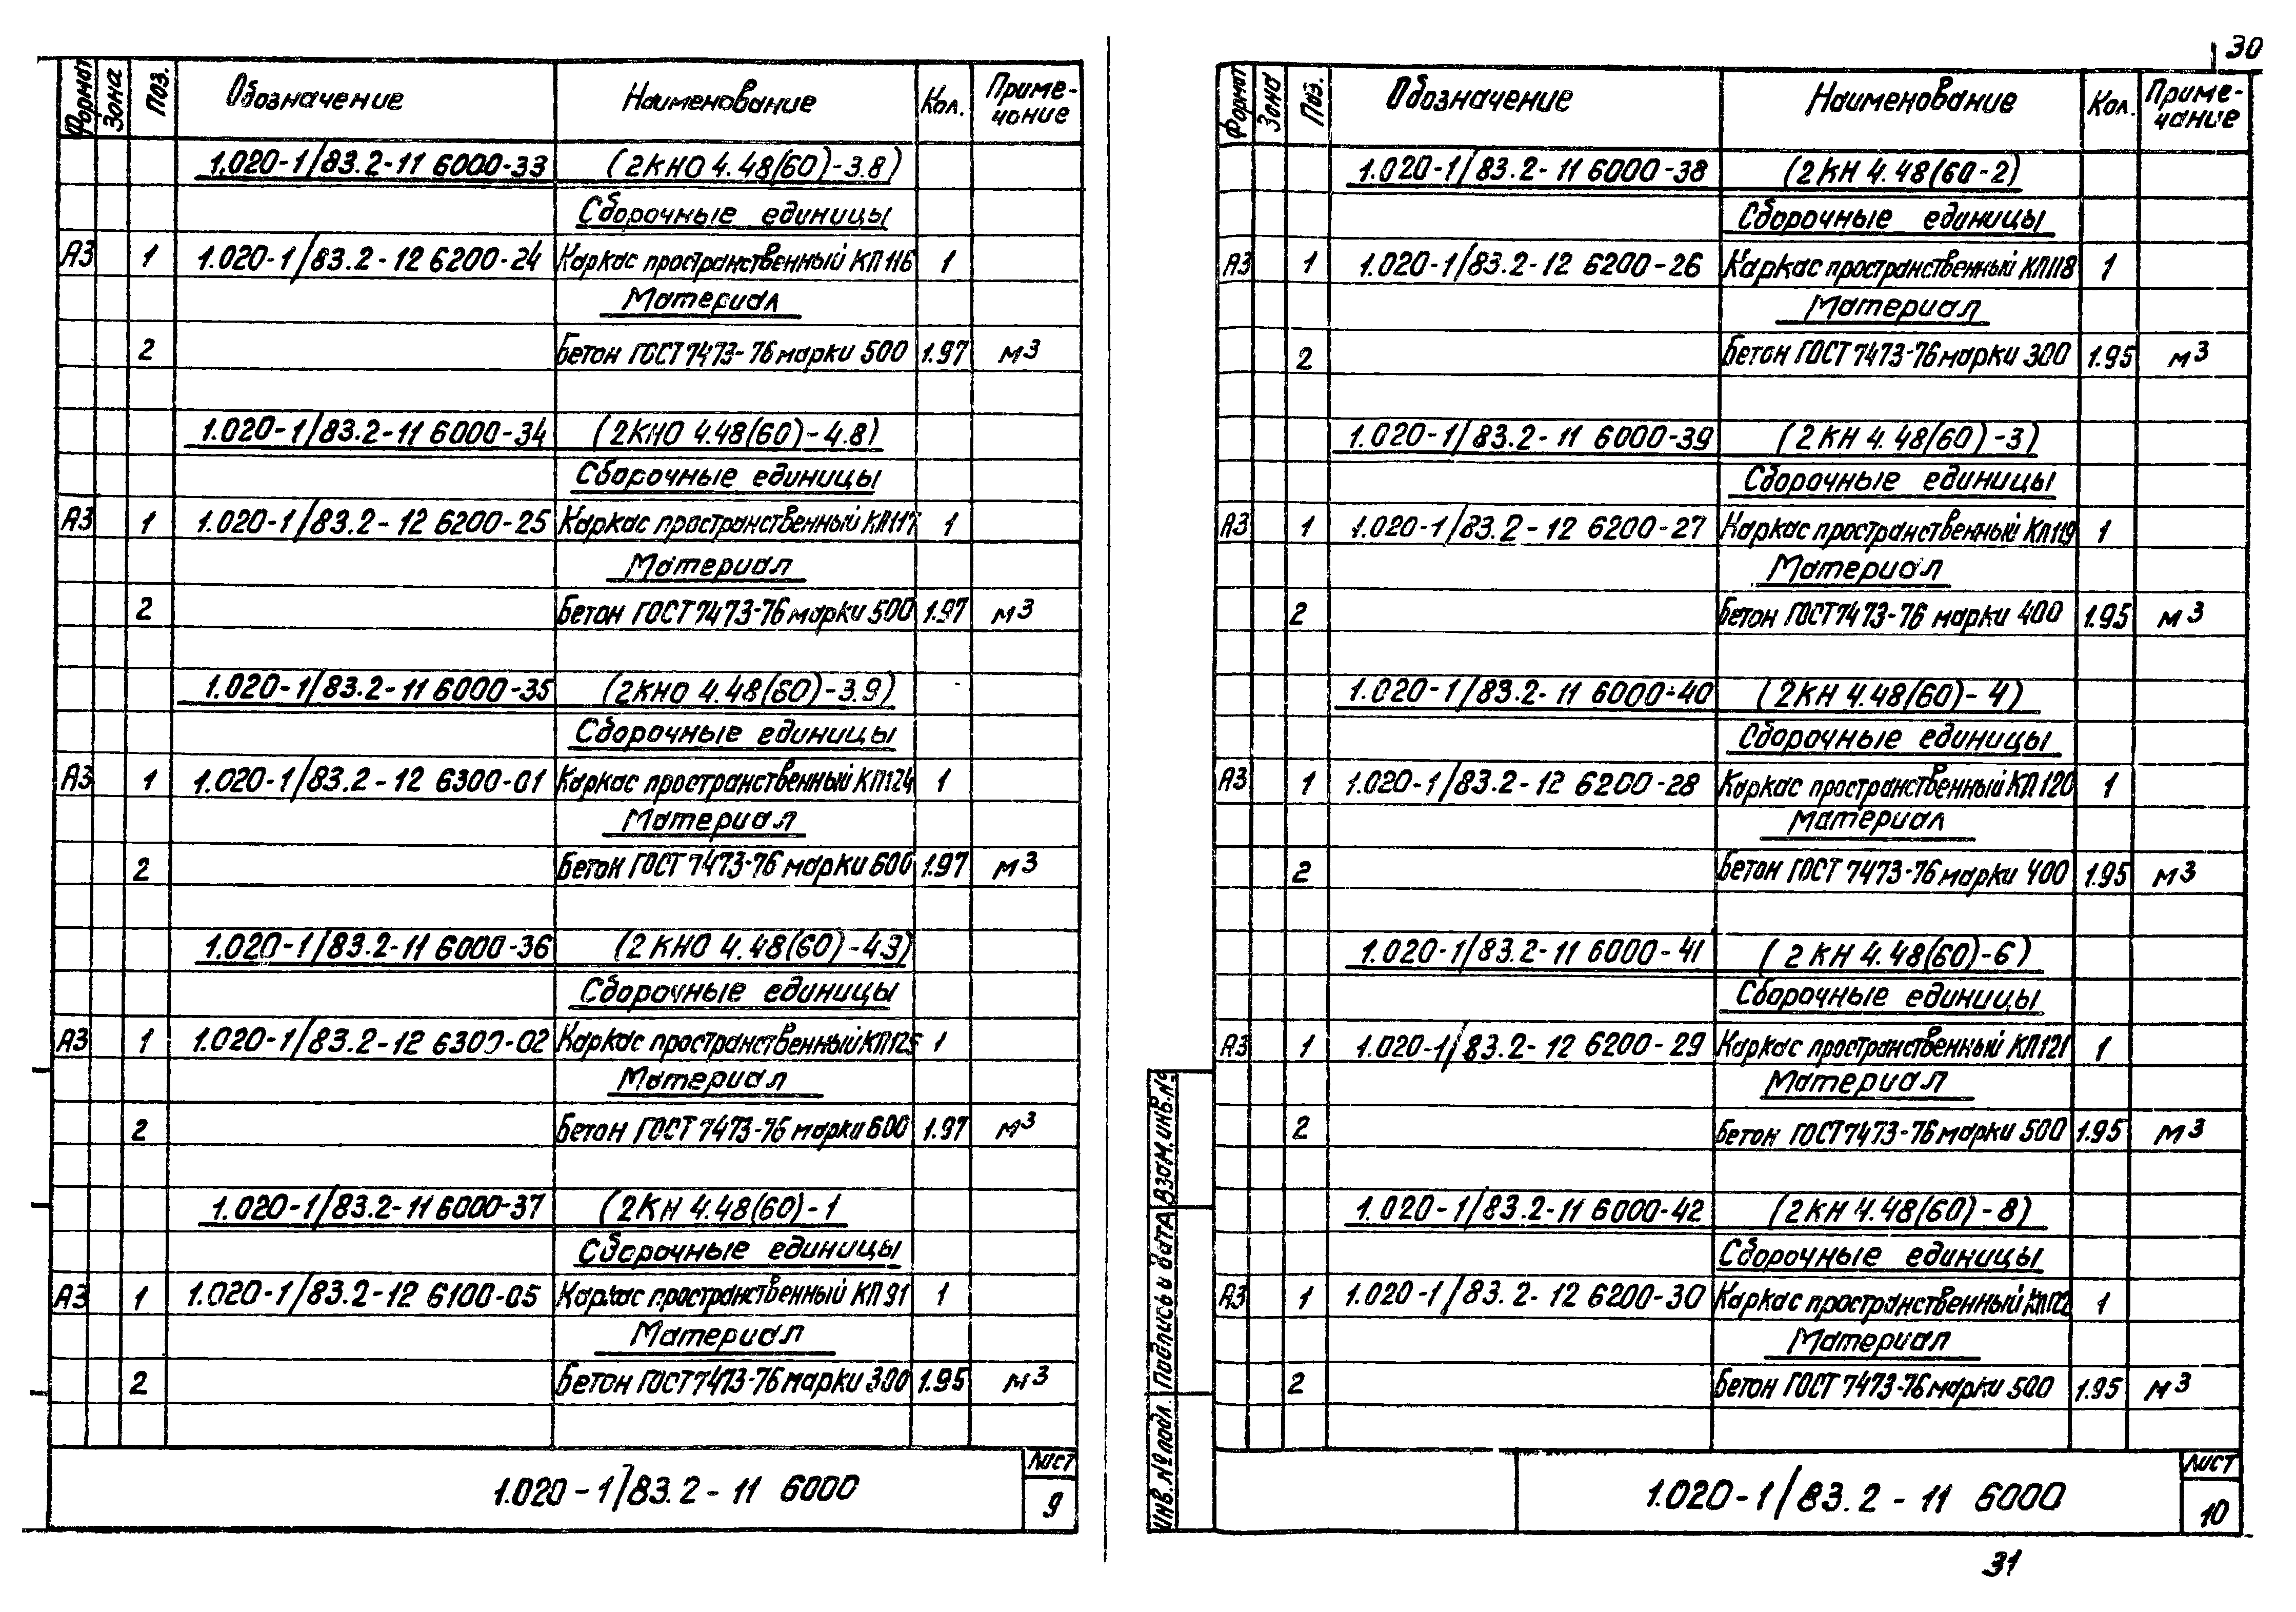 30
Формат Зона Поз. Обозначение Наименование Кол. Приме-
чание
1.020-1/83.2-11 6000-33 (2КНО 4.48(60)-3.8)
Сборочные единицы
А3 1 1.020-1/83.2-12 6200-24 Каркас пространственный КП116 1
Материал
2 Бетон ГОСТ 7473-76 марки 500 1.97 м3
1.020-1/83.2-11 6000-34 (2КНО 4.48(60)-4.8)
Сборочные единицы
А3 1 1.020-1/83.2-12 6200-25 Каркас пространственный КП117 1
Материал
2 Бетон ГОСТ 7473-76 марки 500 1.97 м3
1.020-1/83.2-11 6000-35 (2КНО 4.48(60)-3.9)
Сборочные единицы
А3 1 1.020-1/83.2-12 6300-01 Каркас пространственный КП124 1
Материал
2 Бетон ГОСТ 7473-76 марки 600 1.97 м3
1.020-1/83.2-11 6000-36 (2КНО 4.48(60)-4.9)
Сборочные единицы
А3 1 1.020-1/83.2-12 6300-02 Каркас пространственный КП125 1
Материал
2 Бетон ГОСТ 7473-76 марки 600 1.97 м3
1.020-1/83.2-11 6000-37 (2КН 4.48(60)-1
Сборочные единицы
А3 1 1.020-1/83.2-12 6100-05 Каркас пространственный КП91 1
Материал
2 Бетон ГОСТ 7473-76 марки 300 1.95 м3
1.020-1/83.2-11 6000
Лист
9
Формат Зона Поз. Обозначение Наименование Кол. Приме-
чание
1.020-1/83.2-11 6000-38 (2КН 4.48(60-2)
Сборочные единицы
А3 1 1.020-1/83.2-12 6200-26 Каркас пространственный КП118 1
Материал
2 Бетон ГОСТ 7473-76 марки 300 1.95 м3
1.020-1/83.2-11 6000-39 (2КН 4.48(60)-3)
Сборочные единицы
А3 1 1.020-1/83.2-12 6200-27 Каркас пространственный КП119 1
Материал
2 Бетон ГОСТ 7473-76 марки 400 1.95 м3
1.020-1/83.2-11 6000-40 (2КН 4.48(60)-4)
Сборочные единицы
А3 1 1.020-1/83.2-12 6200-28 Каркас пространственный КП120 1
Материал
2 Бетон ГОСТ 7473-76 марки 400 1.95 м3
1.020-1/83.2-11 6000-41 (2КН 4.48(60)-6)
Сборочные единицы
А3 1 1.020-1/83.2-12 6200-29 Каркас пространственный КП121 1
Материал
2 Бетон ГОСТ 7473-76 марки 500 1.95 м3
1.020-1/83.2-11 6000-42 (2КН 4.48(60)-8)
Сборочные единицы
А3 1 1.020-1/83.2-12 6200-30 Каркас пространственный КП122 1
Материал
2 Бетон ГОСТ 7473-76 марки 500 1.95 м3
Инв.№подл. Подпись и дата Взам.инв.№
1.020-1/83.2-11 6000
Лист
10
31